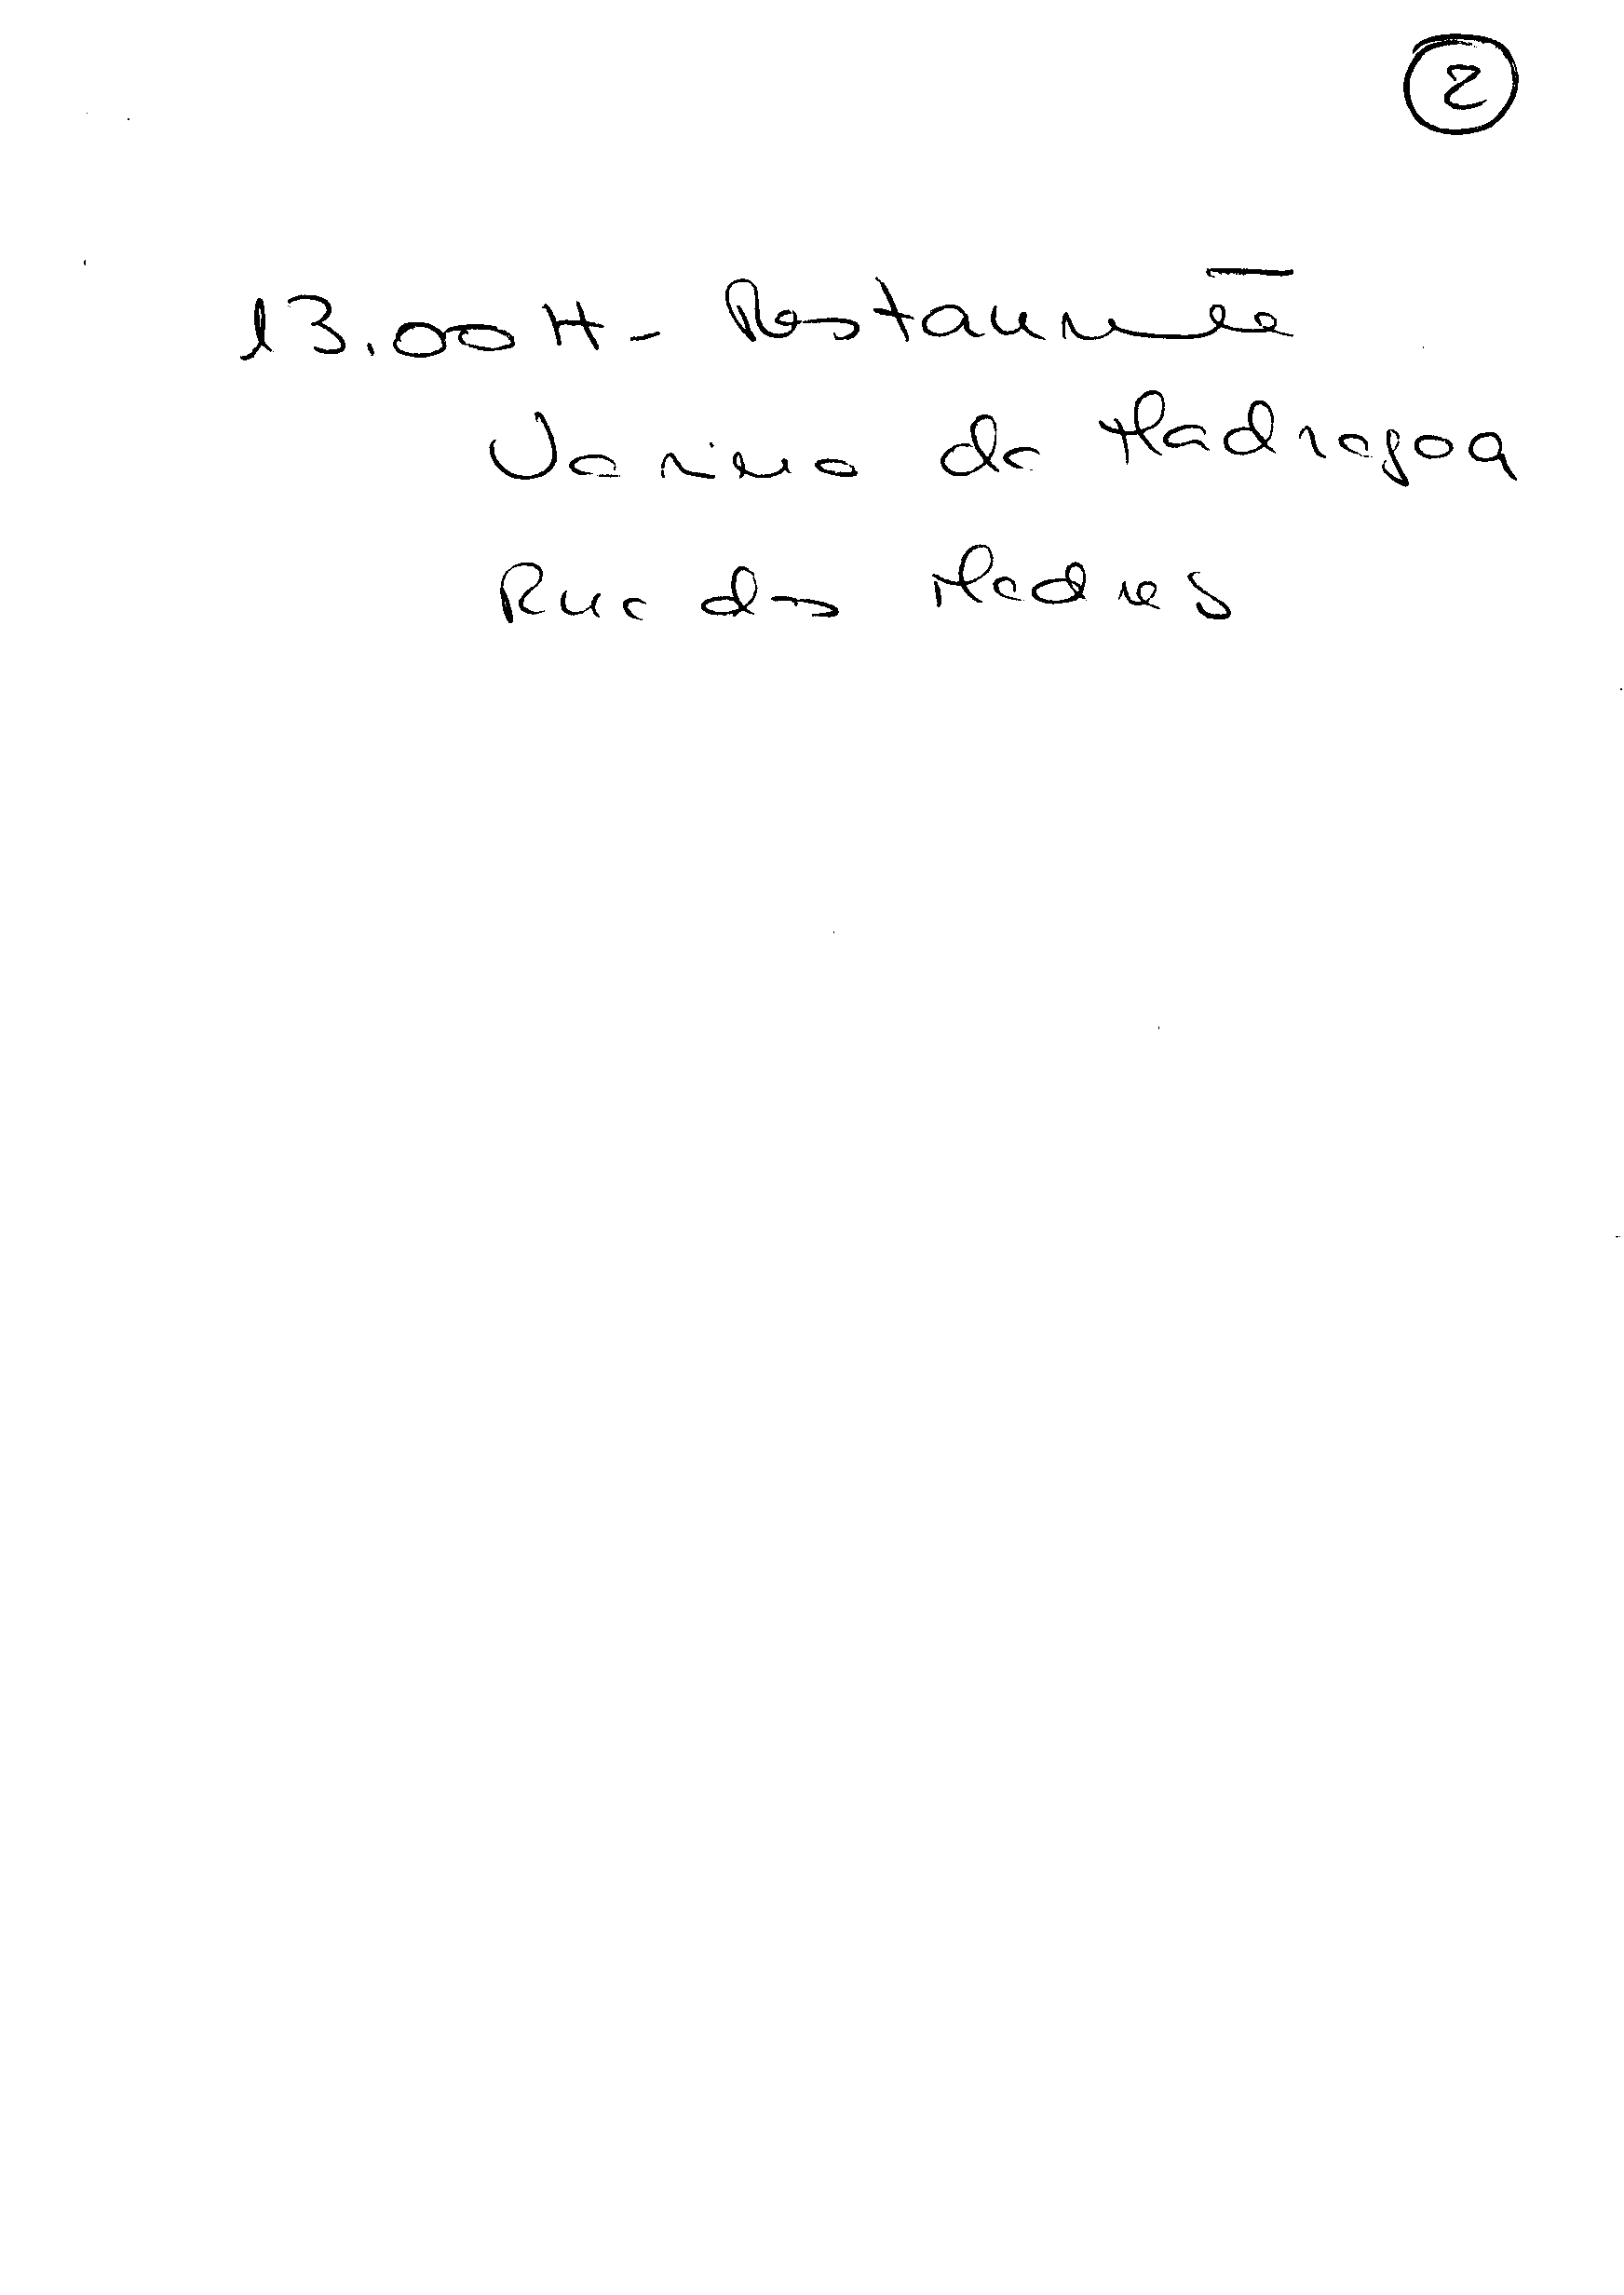 2
13.00H - Restaurante
Varina da Madragoa
Rua das Madres